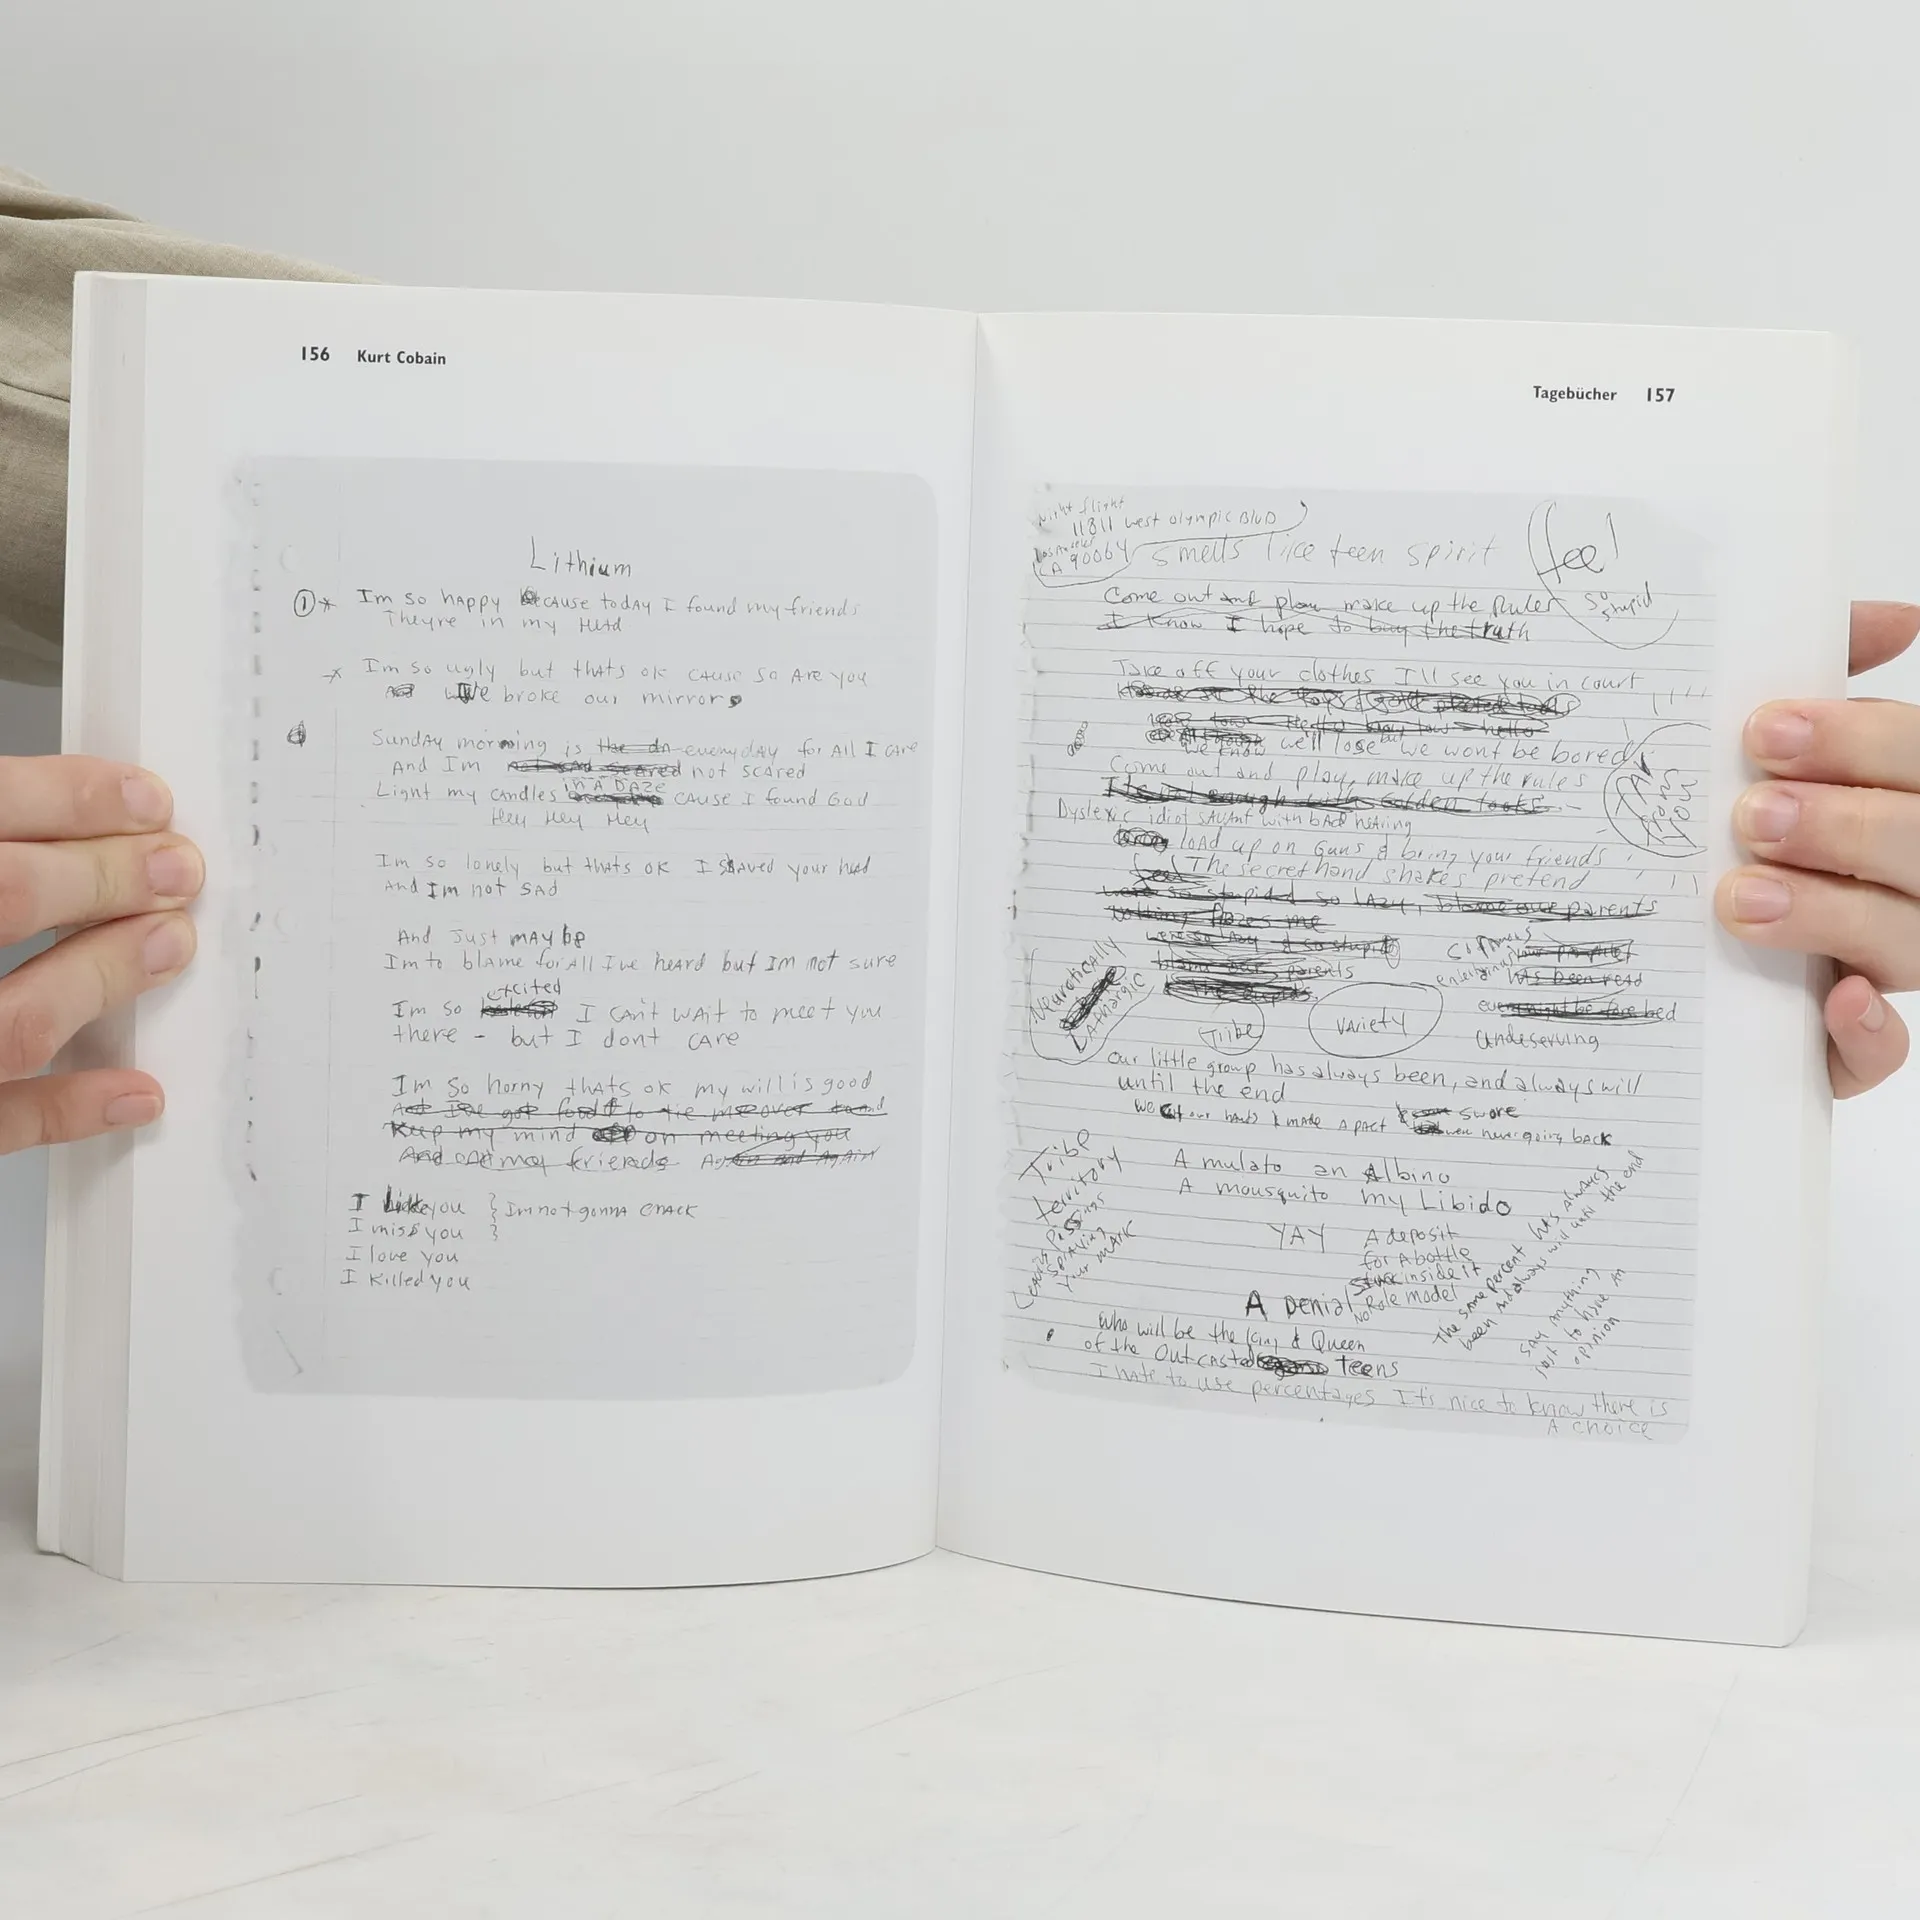 156 Kurt Cobain
Lithium
① * Im so happy because today I found my friends
Theyre in my Head
* Im so ugly but thats ok cause so Are you
We broke our mirrors
Sunday morning is the da everyday for All I care
And I'm not SAd scared not scared
in A DAZE
Light my candles CAUSE I found God
Hey Hey Hey
Im so lonely but thats ok I shaved your head
And Im not SAD
And Just MAYbe
Im to blAme for All Ive heard but Im not sure
excited
Im so I can't wait to meet you
there - but I dont care
Im so horny thats ok my will is good
to tie me over
Keep my mind on meeting you
And friends Again and Again
I like you } Im not gonna CRACK
I miss you }
I love you
I Killed you
Tagebücher 157
Night flight
11811 West Olympic BlvD
Los Angeles
CA 90064
Smells like teen spirit
feel
so stupid
Come out and play make up the Rules
I know I hope to buy the truth
Take off your clothes I'll see you in court
we know we'll lose but we wont be bored
Come out and play, make up the rules
Its not enough with Golden tools
Dyslexic idiot SAVAnt with bAD heAring
loAd up on Guns & bring your friends
feel The secret hand shakes pretend
were so stupid so lAzy, blame our parents
Nothing me
were so lazy & so stupid
blame our parents
Neurotically
Lathargic
has been read
Undeserving
Tribe
VAriety
our little group has always been, and always will
until the end
We cut our hands & made A pact swore
were never going back
Tribe
territory
A mulato an Albino
A mousquito my Libido
YAY A deposit
for A bottle
Stuck inside it
No Role model
A Denial
Leaving
Spraying
Your MARK
The same percent has always
been And always will until the end
SAy Anything
Just to have An
opinion
Who will be the King & Queen
of the Outcasted teens
I hate to use percentages It's nice to know there is
A choice